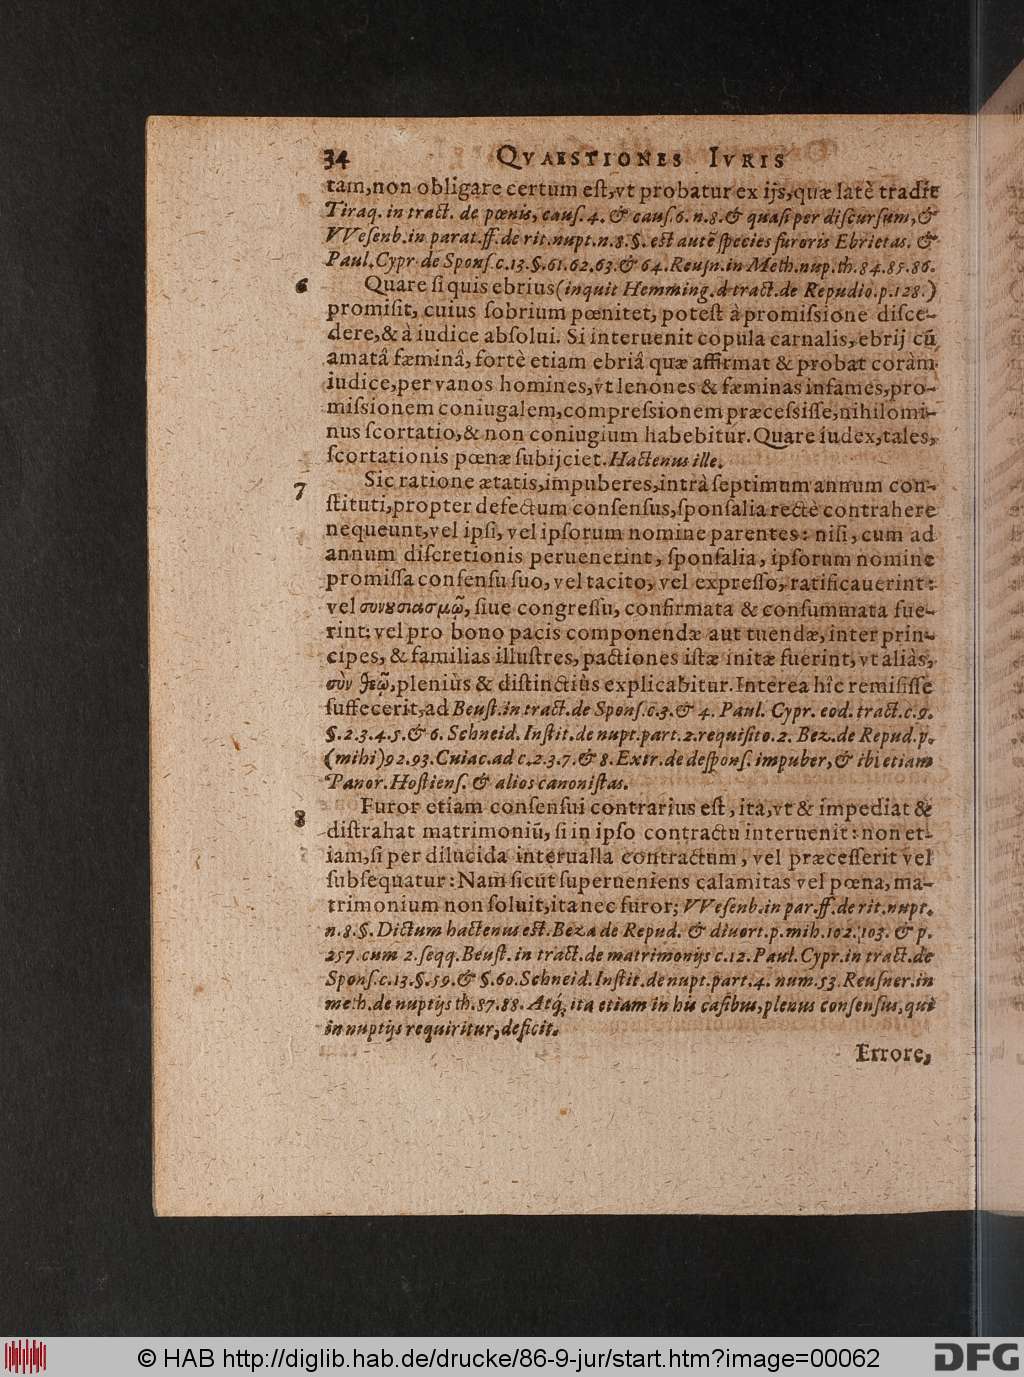 34 QVAESTIONES IVRIS
tam,non obligare certum eſt,vt probatur ex ijs,quæ latè tradit
Tiraq. in tract. de pœnis, cauſ. 4. & cauſ. 6. n. 8. & quaſi per diſcurſum, &
VVeſenb. in parat. ff. de rit. nupt. n. 8. §. eſt autē ſpecies furoris Ebrietas. &
Paul. Cypr. de Sponſ. c. 13. §. 61. 62. 63. & 64. Reuſn. in Meth. nup. th. 84. 85. 86.
6 Quare ſi quis ebrius (inquit Hemming. d. tract. de Repudio. p. 128.)
promiſit, cuius ſobrium pœnitet, poteſt à promiſsione diſce-
dere,& à iudice abſolui. Si interuenit copula carnalis, ebrij cū
amatâ fæminâ, fortè etiam ebriâ quæ affirmat & probat coràm
iudice, per vanos homines, vt lenones & fæminas infames, pro-
miſsionem coniugalem, compreſsionem præceſsiſſe, nihilomi-
nus ſcortatio,& non coniugium habebitur. Quare iudex, tales,
ſcortationis pœnæ ſubijciet. Hactenus ille.
7 Sic ratione ætatis, impuberes, intrà ſeptimum annum con-
ſtituti, propter defectum conſenſus, ſponſalia rectè contrahere
nequeunt, vel ipſi, vel ipſorum nomine parentes: niſi, cum ad
annum diſcretionis peruenerint, ſponſalia, ipſorum nomine
promiſſa conſenſu ſuo, vel tacito, vel expreſſo, ratificauerint:
vel συνȣσιασμῶ, ſiue congreſſu, confirmata & conſummata fue-
rint: vel pro bono pacis componendæ aut tuendæ, inter prin-
cipes, & familias illuſtres, pactiones iſtæ initæ fuerint, vt aliàs,
σὺν θεῷ, pleniùs & diſtinctiùs explicabitur. Interea hîc remiſiſſe
ſuffecerit, ad Beuſt. in tract. de Sponſ. c. 3. & 4. Paul. Cypr. eod. tract. c. 9.
§. 2. 3. 4. 5. & 6. Schneid. Inſtit. de nupt. part. 2. requiſito. 2. Bez. de Repud. p.
(mihi) 92. 93. Cuiac. ad c. 2. 3. 7. & 8. Extr. de deſponſ. impuber, & ibi etiam
Panor. Hoſtienſ. & alios canoniſtas.
8 Furor etiam conſenſui contrarius eſt, ita, vt & impediat &
diſtrahat matrimoniū, ſi in ipſo contractu interuenit: non et-
iam, ſi per dilucida interualla contractum, vel præceſſerit vel
ſubſequatur: Nam ſicut ſuperueniens calamitas vel pœna, ma-
trimonium non ſoluit, ita nec furor; VVeſenb. in par. ff. de rit. nupt.
n. 8. §. Dictum hactenus eſt. Beza de Repud. & diuort. p. mih. 102. 103. & p.
257. cum 2. ſeqq. Beuſt. in tract. de matrimonijs c. 12. Paul. Cypr. in tract. de
Sponſ. c. 13. §. 59. & §. 60. Schneid. Inſtit. de nupt. part. 4. num. 53. Reuſner. in
meth. de nuptijs th. 87. 88. Atq́; ita etiam in his caſibus, plenus conſenſus, qui
in nuptijs requiritur, deficit.
Errore,
© HAB http://diglib.hab.de/drucke/86-9-jur/start.htm?image=00062
DFG